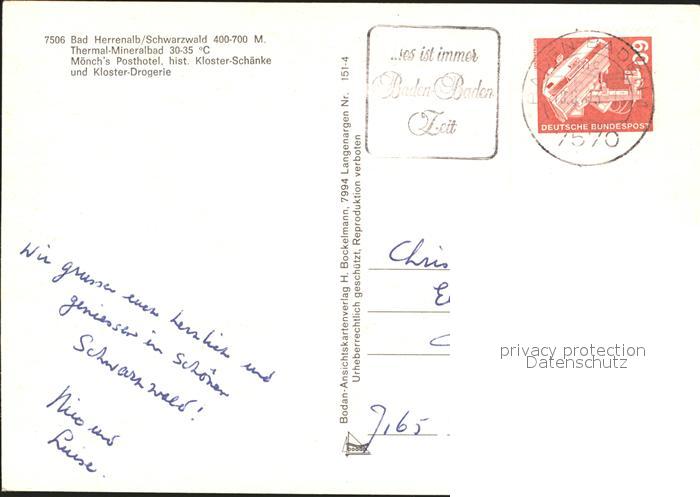 7506 Bad Herrenalb/Schwarzwald 400-700 M.
Thermal-Mineralbad 30-35 °C
Mönch's Posthotel, hist. Kloster-Schänke
und Kloster-Drogerie
Wir grussen euch herzlich und
geniessen im schönen
Schwarzwald!
Nico und
Luise.
Bodan-Ansichtskartenverlag H. Bockelmann, 7994 Langenargen Nr. 151-4
Urheberrechtlich geschützt, Reproduktion verboten
...es ist immer
Baden-Baden
Zeit
BADEN-BADEN
7570
60
DEUTSCHE BUNDESPOST
Chris
7165
privacy protection
Datenschutz